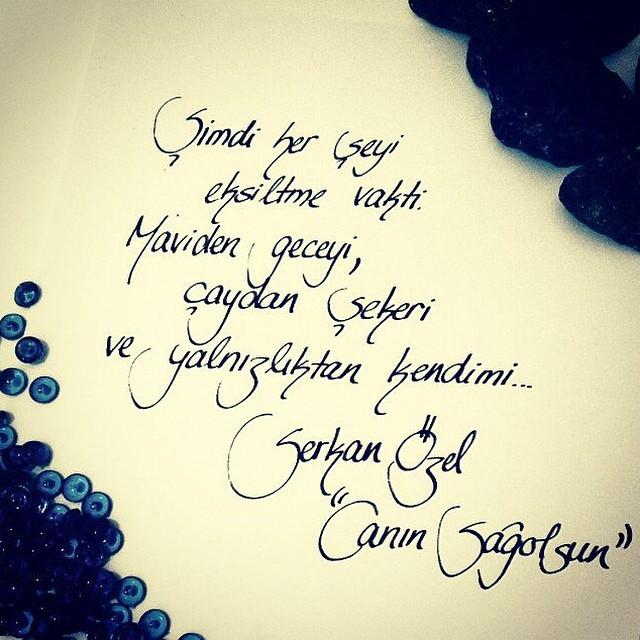 Şimdi her şeyi
eksiltme vakti.
Maviden geceyi,
çaydan şekeri
ve yalnızlıktan kendimi...
Serkan Özel
"Canın Sağolsun"